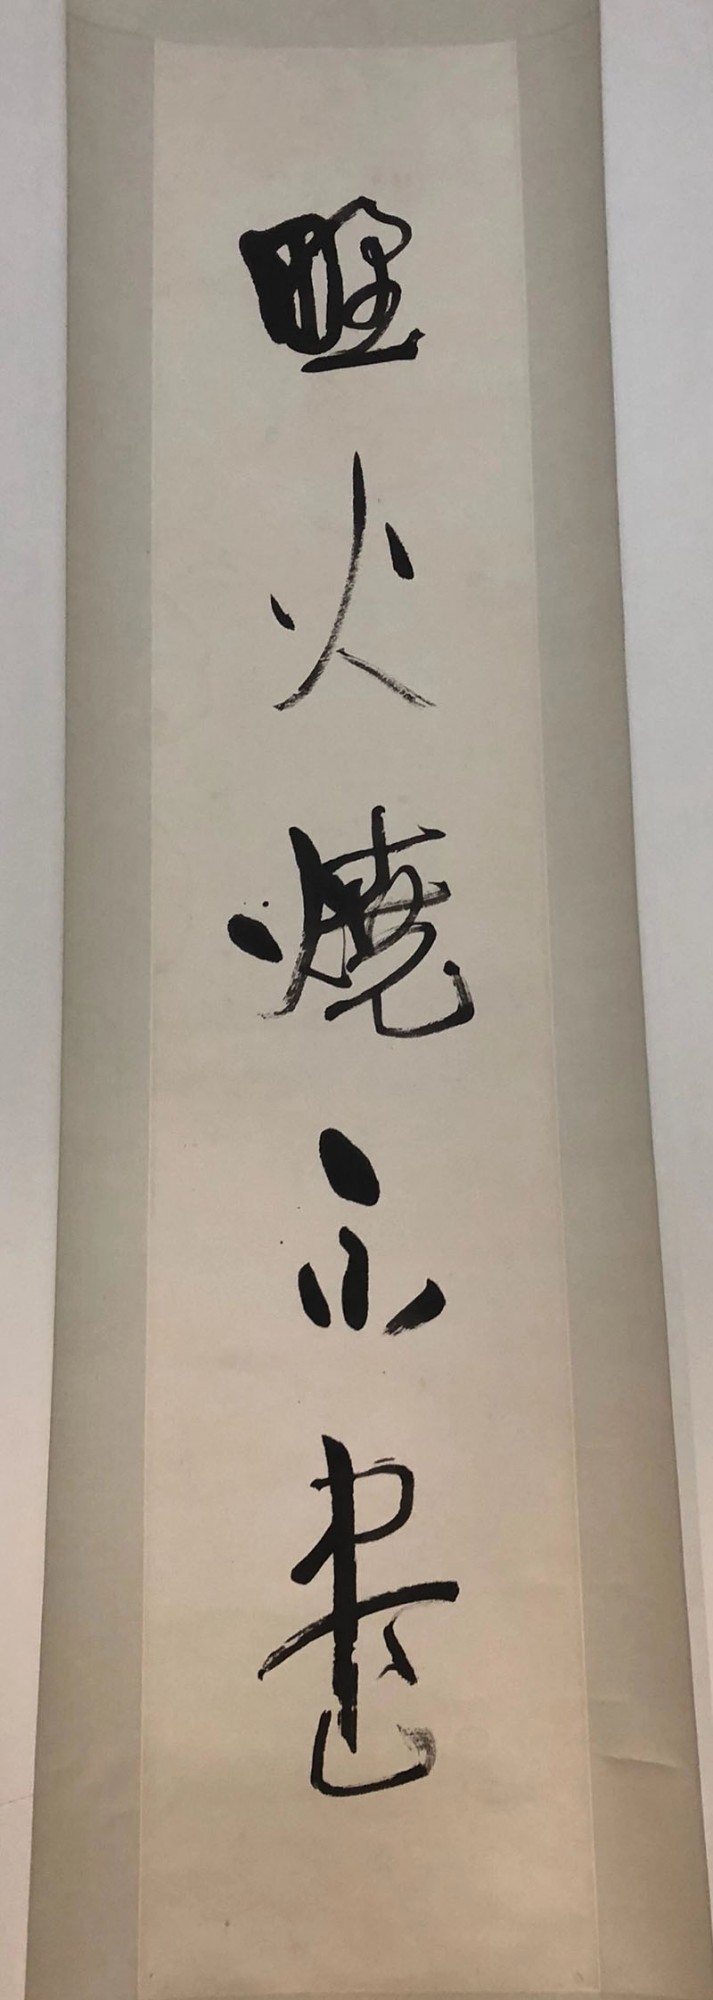 野火燒不盡